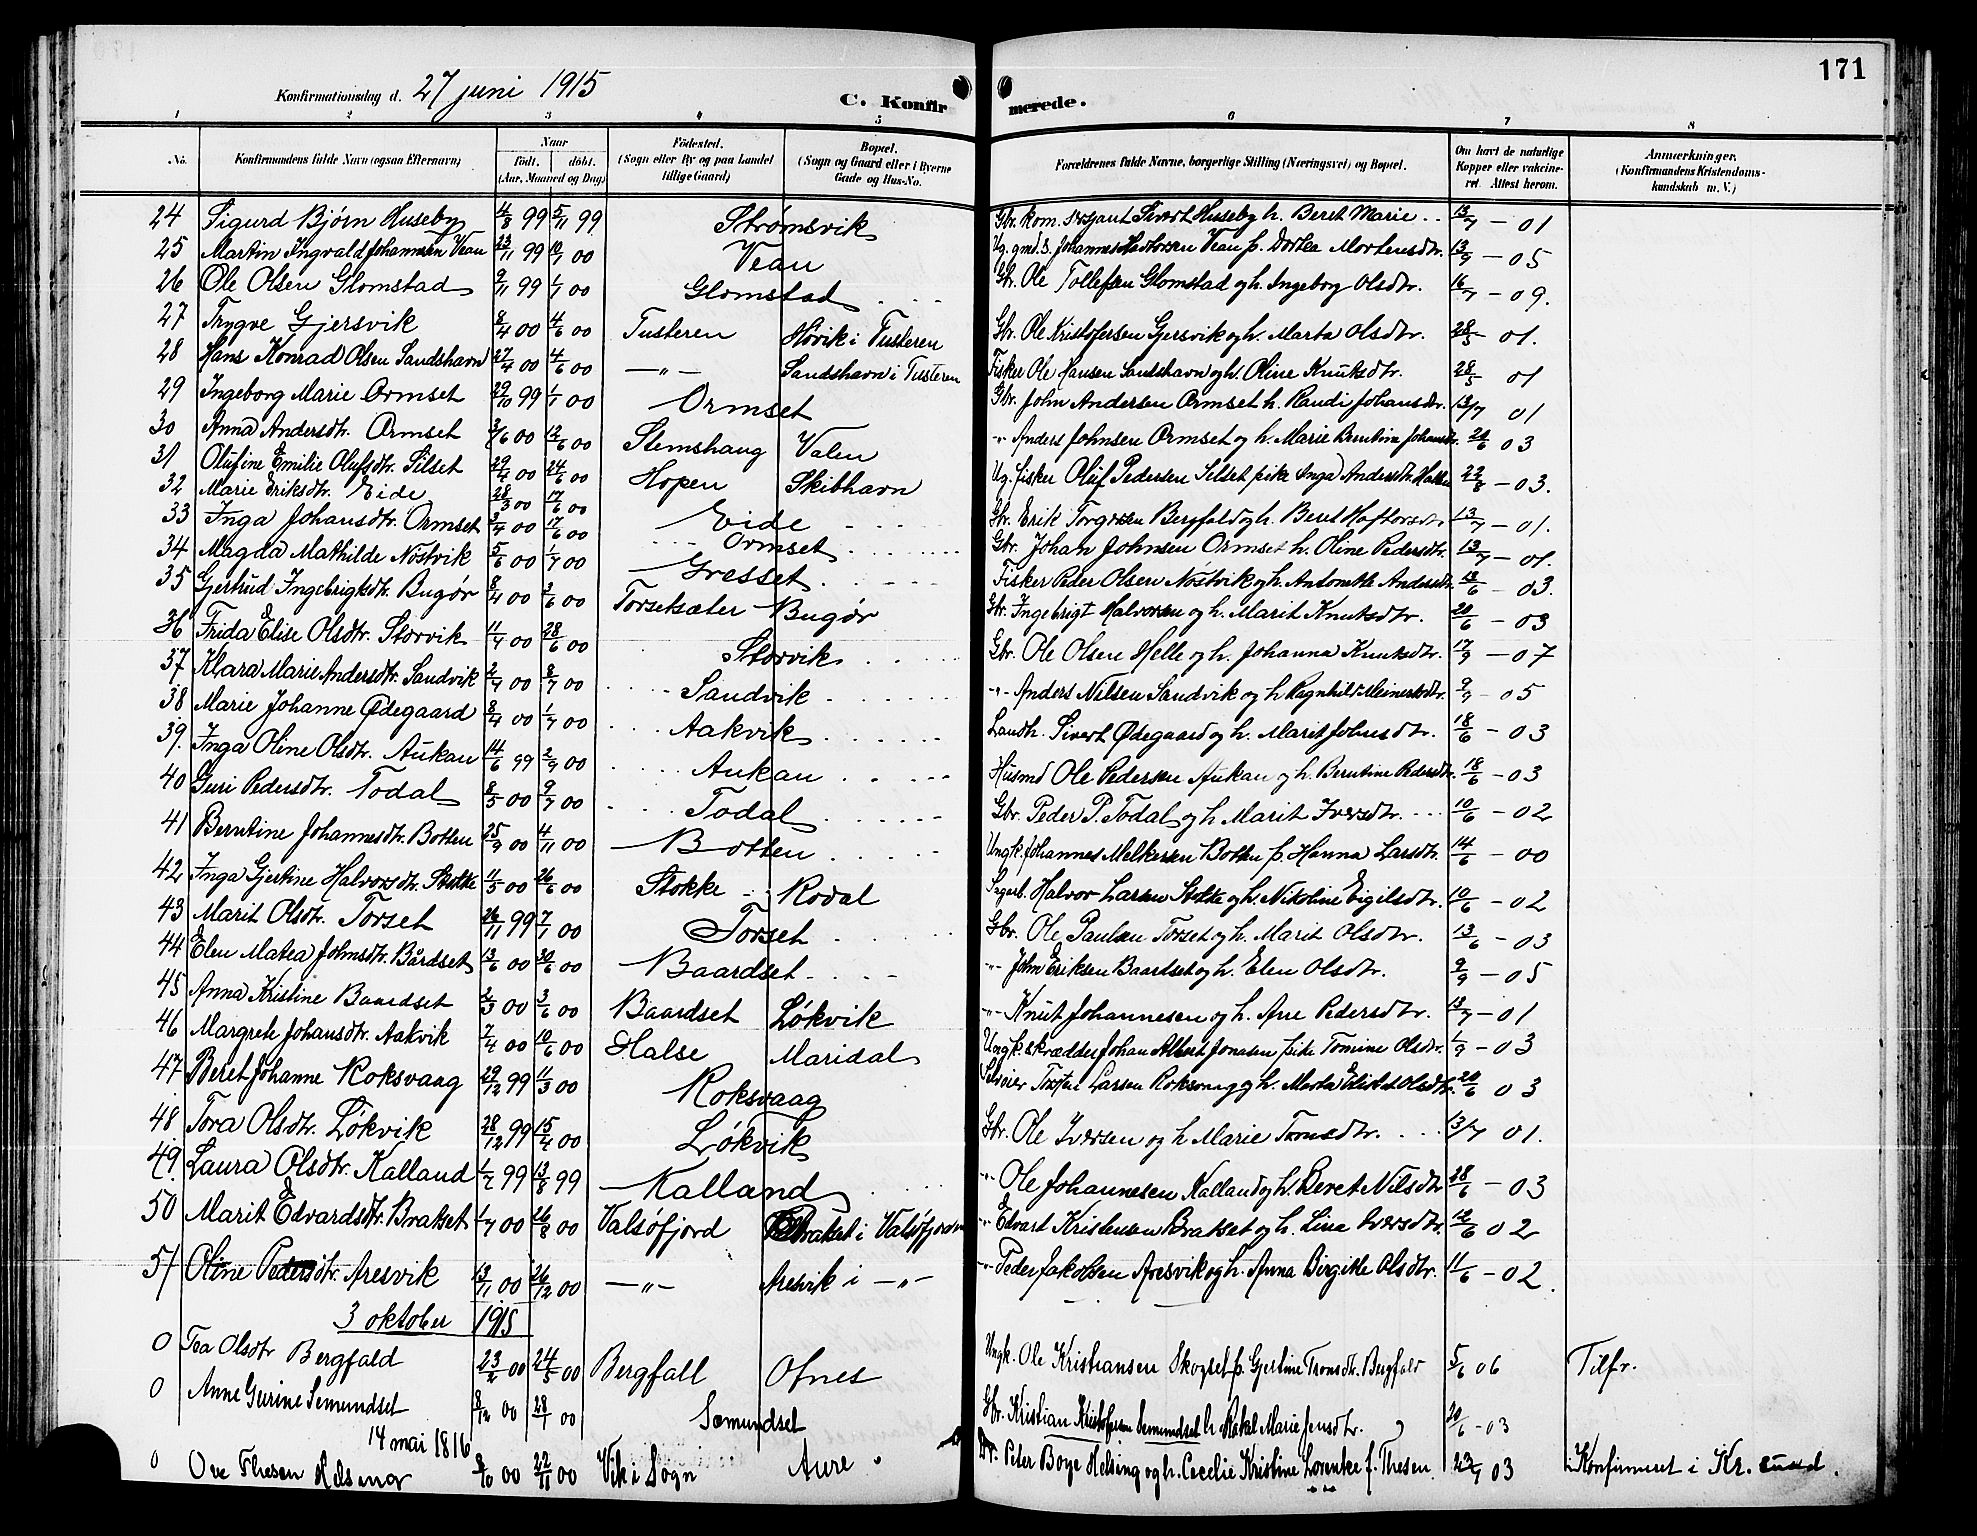 171
Konfirmationsdag d. 27 juni 1915
C. Konfirmerede.
1 2 3 4 5 6 7 8
No. Konfirmandens fulde Navn (ogsaa Efternavn) Naar født. døbt. (Aar, Maaned og Dag) Fødested. (Sogn eller By og paa Landet tillige Gaard) Bopæl. (Sogn og Gaard eller i Byerne Gade og Hus-No. Forældrenes fulde Navne, borgerlige Stilling (Næringsvei) og Bopæl. Om havt de naturlige Kopper eller vakcineret. Attest herom. Anmærkninger. (Konfirmandens Kristendomskundskab m. V.)
24 Sigurd Bjørn Huseby 4/8 99 5/11 99 Strømsvik Gbr. kom. sersjant Sivert Huseby h. Beret Marie 13/7 - 01
25 Martin Ingvald Johannesen Vean 23/11 99 10/1 00 Vean Ug. gmd. s. Johannes Vean p. Dortea Mortensdtr. 13/9 - 05
26 Ole Olsen Glomstad 9/11 99 1/1 00 Glomstad Gbr. Ole Tollefsen Glomstad og h. Ingeborg Olsdtr. 16/7 - 09.
27 Trygve Gjersvik 8/4 00 4/6 00 Tusteren Høvik i Tusteren Gbr. Ole Kristofersen Gjersvik og h. Marta Olsdtr. 28/5 - 01.
28 Hans Konrad Olsen Sandshavn 27/4 00 4/6 00 —"— Sandshavn i Tusteren Fisker Ole Hansen Sandshavn og h. Oline Knutsdtr. 28/5 01
29 Ingeborg Marie Ormset 29/10 99 1/1 00 Ormset Gbr. John Andersen Ormset h. Randi Johansdtr. 13/7 01
30 Anna Andersdtr. Ormset 3/6 00 12/6 00 Stemshaug Valen "- Anders Johnsen Ormset og h. Marie Berntine Johansdtr. 20/6 03
31 Olufine Emilie Olufsdtr. Silset 29/4 00 24/6 00 Hopen Skibhavn Ug. fisker Oluf Pedersen Silset pike Inga Andersdtr. 22/8 - 03.
32 Marie Eriksdtr. Eide 28/3 00 17/6 00 Eide Gbr. Erik Torgersen Bergfald og h. Beret Haftorsdtr. 13/7 - 01.
33 Inga Johansdtr. Ormset 3/4 00 17/6 00 Ormset Gbr. Johan Johnsen Ormset h. Oline Pedersdtr. 13/7 - 01.
34 Magda Mathilde Nøstvik 5/6 00 1/7 00 Gresset Fisker Peder Olsen Nøstvik og h. Antonette Andersdtr. 18/6 - 03.
35 Gjertrud Ingebrigtsdtr. Bugør 8/4 00 3/6 00 Torsetsæter Bugør Gbr. Ingebrigt Halvorsen og h. Marit Knutsdtr. 20/6 - 03
36 Frida Elise Olsdtr. Storvik 11/4 00 28/6 00 Storvik Gbr. Ole Olsen Helle og h. Johanna Knutsdtr. 17/9 - 07
37 Klara Marie Andersdtr. Sandvik 2/4 00 8/7 00 Sandvik "- Anders Nilsen Sandvik og h. Ragnhild Meinertsdtr. 9/9 - 05
38 Marie Johanne Ødegaard 8/4 00 1/7 00 Aakvik Landh. Sivert Ødegaard og h. Marit Johnsdtr. 18/6 - 03
39. Inga Oline Olsdtr. Aukan 14/6 99 2/9 00 Aukan Husmd Ole Pedersen Aukan og h. Berntine Pedersdtr. 18/6 - 03
40 Guri Pedersdtr. Todal 8/5 00 9/7 00 Todal Gbr. Peder P. Todal og h. Marit Iversdtr. 10/6 - 02
41 Berntine Johannesdtr. Botten 25/9 00 4/11 00 Botten Ungk. Johannes Melkersen Botten p. Hanna Larsdtr. 14/6 - 00
42 Inga Gjertine Halvorsdtr. Stokke 11/5 00 26/6 00 Stokke Rodal Sagarb. Halvor Larsen Stokke og h. Nikoline Eigilsdtr. 10/6 - 02
43 Marit Olsdtr. Torset 26/11 99 7/1 00 Torset Gbr. Ole Paulsen Torset og h. Marit Olsdtr. 13/6 - 03
44 Elen Matea Johnsdtr. Bårdset 13/6 00 30/6 00 Baardset "- John Eriksen Baardset og h. Elen Olsdtr. 9/9 - 05
45 Anna Kristine Baardset 2/3 00 3/6 00 Baardset Løkvik "- Knut Johannesen og h. Ane Pedersdtr. 13/7 - 01
46 Margrete Johansdtr. Aakvik 7/4 00 10/6 00 Halse Maridal Ungk. skrædder Johan Albert Jonasen pike Tomine Olsdtr. 1/9 - 03
47 Beret Johanne Roksvaag 29/12 99 11/3 00 Roksvaag Selveier Larsen Roksvaag og h. Marta Olsdtr. 20/6 03
48 Tora Olsdtr. Løkvik 28/12 99 15/4 00 Løkvik Gbr. Ole Iversen og h Marie Tronsdtr. 13/7 01.
49. Laura Olsdtr. Kalland 1/7 99 13/8 99 Kalland "- Ole Johannesen Kalland og h. Beret Nilsdtr 28/6 - 03
50 Marit Edvardsdtr. Brakset 1/7 00 26/8 00 Valsøfjord Brakset i Valsøfjorden "- Edvart Kristensen Brakset og h. Lina Iversdtr. 12/6 02
51 Oline Pedersdtr. Aresvik 13/11 00 26/12 00 —"— Aresvik i —"— "- Peder Jakobsen Aresvik og h. Anna Birgitte Olsdtr. 11/6 - 02.
3 oktober 1915
0 Tea Olsdtr Bergfald 23/2 00 24/5 00 Bergfall Ofnes Ungk. Ole Kristiansen Skogset p. Gjertine Tronsdtr. Bergfald 5/6 06 Tilfr.
0 Anne Gurine Semundset 8/12 00 28/1 00 Semundset Gbr. Kristian Kristofersen Semundset h Rakel Marie Jensdtr. 20/6 - 03
14 mai 1816
0 Ove Thesen Helsing 8/10 00 22/11 00 Vik i Sogn Aure Dr. Peter Boye Helsing og h. Cecelie Kristine Lorentze f. Thesen. 23/7 03 Konfirmeret i Kr. sund.